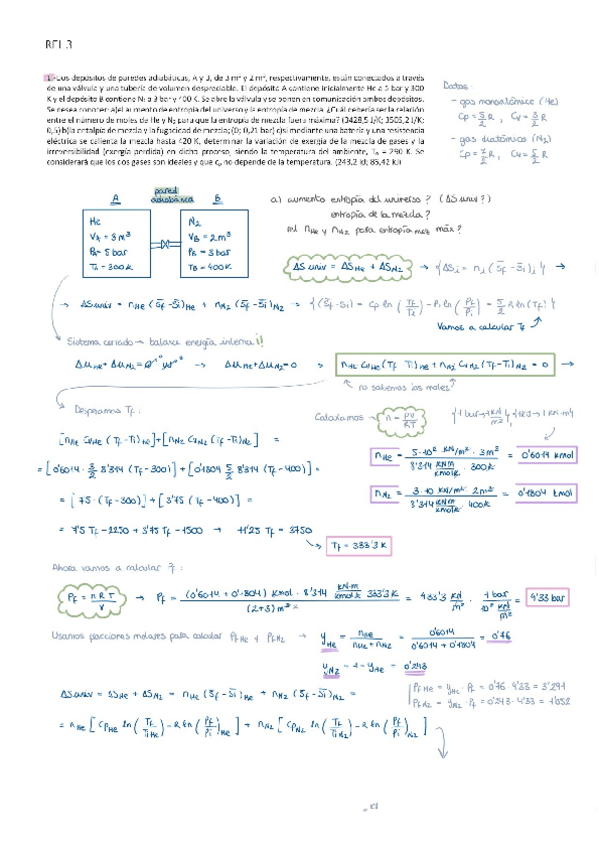 REL 3
1.-Dos depósitos de paredes adiabáticas, A y B, de 3 m³ y 2 m³, respectivamente, están conectados a través
de una válvula y una tubería de volumen despreciable. El depósito A contiene inicialmente He a 5 bar y 300
K y el depósito B contiene N₂ a 3 bar y 400 K. Se abre la válvula y se ponen en comunicación ambos depósitos.
Se desea conocer: a)el aumento de entropía del universo y la entropía de mezcla. ¿Cuál debería ser la relación
entre el número de moles de He y N₂ para que la entropía de mezcla fuera máxima? (3428,5 J/K; 3505,2 J/K;
0,5) b)la entalpía de mezcla y la fugacidad de mezcla; (0; 0,21 bar) c)si mediante una batería y una resistencia
eléctrica se calienta la mezcla hasta 420 K, determinar la variación de exergía de la mezcla de gases y la
irreversibilidad (exergía perdida) en dicho proceso, siendo la temperatura del ambiente, T₀ = 290 K. Se
considerará que los dos gases son ideales y que cₚ no depende de la temperatura. (243,2 kJ; 85,42 kJ)
Datos:
- gas monoatómico (He)
Cp = 5/2 R , Cv = 3/2 R
- gas diatómico (N2)
Cp = 7/2 R , Cv = 5/2 R
A pared adiabática B
He N2
VA = 3 m³ VB = 2 m³
PA = 5 bar PB = 3 bar
TA = 300K TB = 400K
a) aumento entropía del universo ? (ΔS univ ?)
entropía de la mezcla ?
nHe y nN2 para entropía mez máx ?
ΔS univ = ΔSHe + ΔSN2 → {ΔSi = ni (Sf - Si)i} →
→ ΔSuniv = nHe (Sf - Si)He + nN2 (Sf - Si)N2 →
Vamos a calcular Tf
Sistema cerrado → balance energía interna !!
ΔUHe + ΔUN2 = → ΔUHe + ΔUN2 = 0 → nHe CvHe (Tf - Ti)He + nN2 CvN2 (Tf - Ti)N2 = 0 →
no sabemos los moles
Despejamos Tf :
Calculamos → n = PV/RT
[nHe CvHe (Tf - Ti)He] + [nN2 CvN2 (Tf - Ti)N2] =
nHe = 5·10² KN/m² · 3m³ / 8'314 KNm/kmolK · 300K = 0'6014 kmol
= [0'6014 · 3/2 8'314 (Tf - 300)] + [0'1804 5/2 8'314 (Tf - 400)] =
nN2 = 3·10 KN/m² 2m³ / 8'314 KNm/kmolK · 400K = 0'1804 kmol
= [7'5 · (Tf - 300)] + [3'75 (Tf - 400)] =
= 7'5 Tf - 2250 + 3'75 Tf - 1500 → 11'25 Tf = 3750
Tf = 333'3 K
Ahora vamos a calcular Pf :
Pf = nRT/V → Pf = (0'6014 + 0'1804) kmol · 8'314 KN·m/kmolK 333'3K / (2+3) m³ = 433'3 KN/m² · 1 bar / 10² KN/m² = 4'33 bar
Usamos fracciones molares para calcular PfHe y PfN2 → yHe = nHe / nHe + nN2 = 0'6014 / 0'6014 + 0'1804 = 0'76
yN2 = 1 - yHe = 0'243
ΔSuniv = ΔSHe + ΔSN2 = nHe (Sf - Si)He + nN2 (Sf - Si)N2 =
PfHe = yHe · Pf = 0'76 · 4'33 = 3'291
PfN2 = yN2 · Pf = 0'243 · 4'33 = 1'052
= nHe [CpHe ln (Tf/Ti)He - R ln (Pf/Pi)He] + nN2 [CpN2 ln (Tf/Ti)N2 - R ln (Pf/Pi)N2]